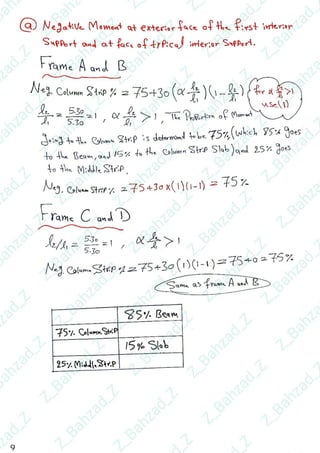 ⓐ Negative Moment at exterior face of the first interior
Support and at face of typical interior Support.
Frame A and B
Neg. Column Strip % = 75+30(α l₂/l₁)(1-l₂/l₁) {for α l₂/l₁ >1 use(1)}
l₂/l₁ = 5.30/5.30 = 1 , α l₂/l₁ > 1 , The Proportion of Moment
going to the Column Strip is determined to be 75% (which 85% goes
to the Beam, and 15% to the Column Strip Slab) and 25% goes
to the Middle Strip.
Neg. Column Strip % = 75+30x(1)(1-1) = 75%
Frame C and D
l₂/l₁ = 5.30/5.30 = 1 , α l₂/l₁ > 1
Neg. Column Strip % = 75+30(1)(1-1) = 75+0 = 75%
Same as frame A and B
85% Beam
75% Column Strip
15% Slab
25% Middle Strip
9
Z_Bahzad_Z